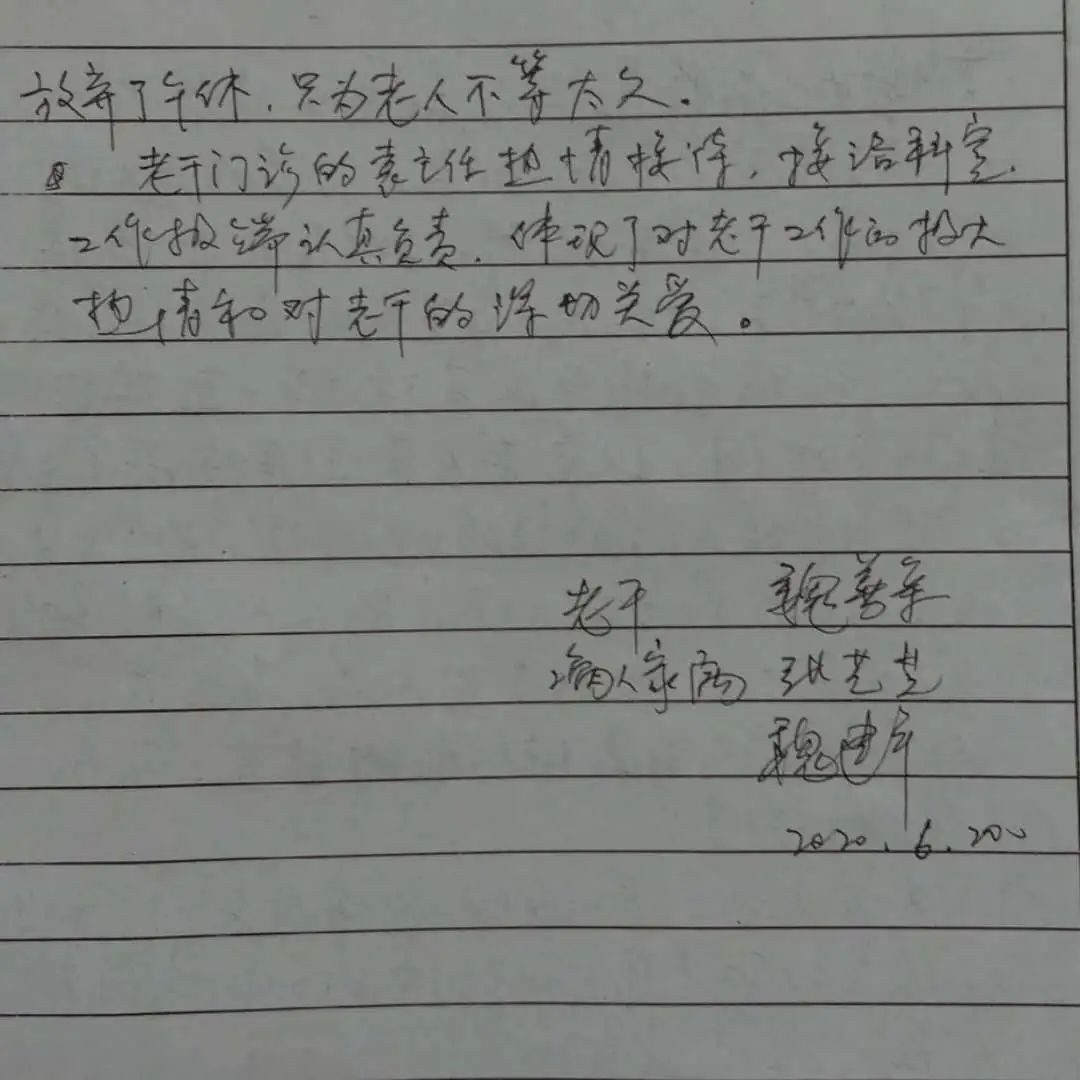 放弃了午休，只为老人不等太久。
老干门诊的袁主任热情接待，接洽科室，
工作极端认真负责，体现了对老干工作的极大
热情和对老干的深切关爱。
老干 魏善
病人家属 张艺
魏建军
2020.6.20